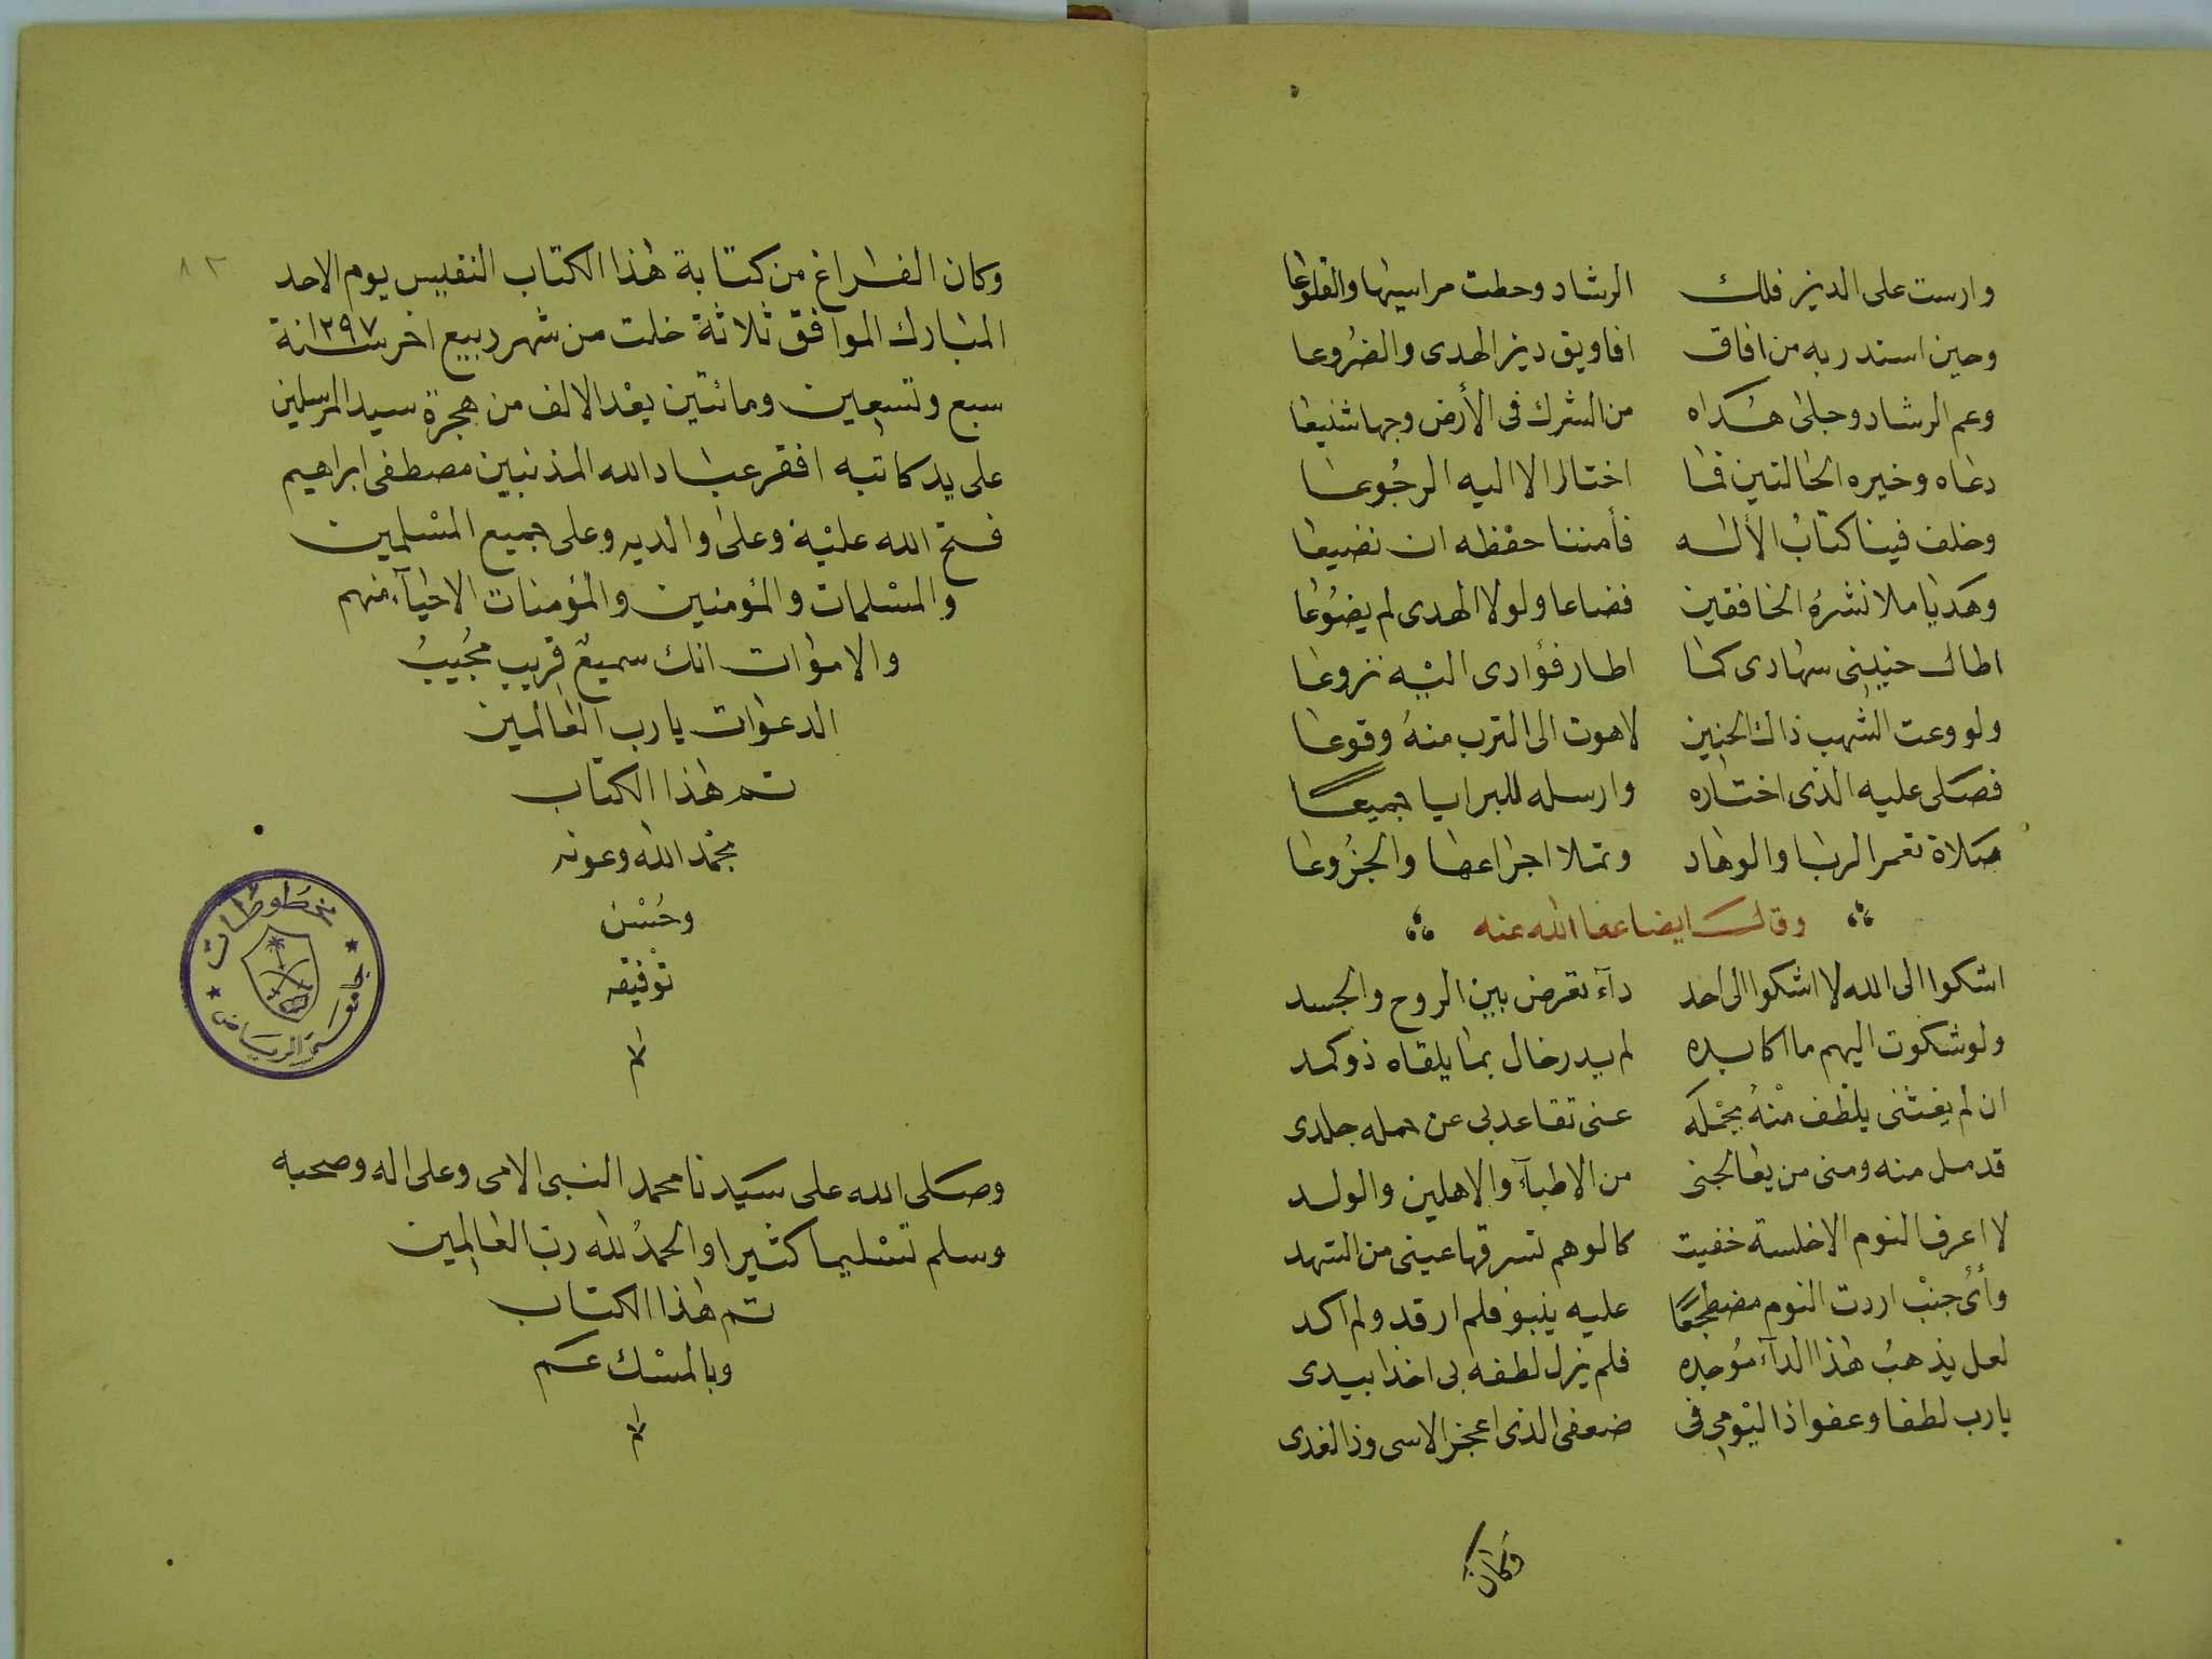 وارست على الدين فلك الرشاد وحطت مراسيها والقلوعا
وحين استدر به من افاق افاويق دين الهدى والضروعا
وعم الرشاد وجلى هداه من الشرك فى الأرض وجها شنيعا
دعاه وخيره الحالتين فما اختار الا اليه الرجوعا
وخلف فينا كتاب الأله فأمننا حفظه ان نضيعا
وهديا ملا نشره الخافقين فضاعا ولولا الهدى لم يضوعا
اطال حنينى سهادى كما اطار فؤادى اليه نزوعا
ولو وعت الشهب ذاك الحنين لاهوت الى الترب منه وقوعا
فصلى عليه الذى اختاره وارسله للبرايا جميعا
صلاة تعمر الربا والوهاد وتملا اجراعها والجزوعا
وقال ايضا عفا الله عنه
اشكوا الى الله لا اشكوا الى احد دآء تعرض بين الروح والجسد
ولو شكوت اليهم ما اكابده لم يدر خال بما يلقاه ذو كمد
ان لم يغثنى بلطف منه يحمله عنى تقاعد بى عن حمله جلدى
قد مل منه ومنى من يعالجنى من الاطبآء والاهلين والولد
لا اعرف النوم الا خلسة خفيت كالوهم تسرقها عينى من السهد
وأى جنب اردت النوم مضطجعا عليه ينبو فلم ارقد ولم اكد
لعل يذهب هذا الدآء موجده فلم يزل لطفه بى اخذا بيدى
يارب لطفا وعفوا ذا ليومى فى ضعفى الذى اعجز الاسى وذا لغدى
وكان
٨٢
وكان الفراغ من كتابة هذا الكتاب النفيس يوم الاحد
المبارك الموافق ثلاثة خلت من شهر ربيع اخر سنة ١٢٩٧
سبع وتسعين ومائتين بعد الالف من هجرة سيد المرسلين
على يد كاتبه افقر عباد الله المذنبين مصطفى ابراهيم
فتح الله عليه وعلى والديه وعلى جميع المسلمين
والمسلمات والمؤمنين والمؤمنات الاحيآء منهم
والاموات انك سميع قريب مجيب
الدعوات يارب العالمين
تم هذا الكتاب
بحمد الله وعونه
وحسن
توفيقه
م
مخطوطات
جامعة الرياض
وصلى الله على سيدنا محمد النبى الامى وعلى اله وصحبه
وسلم تسليما كثيرا والحمد لله رب العالمين
تم هذا الكتاب
وبالمسك عم
م